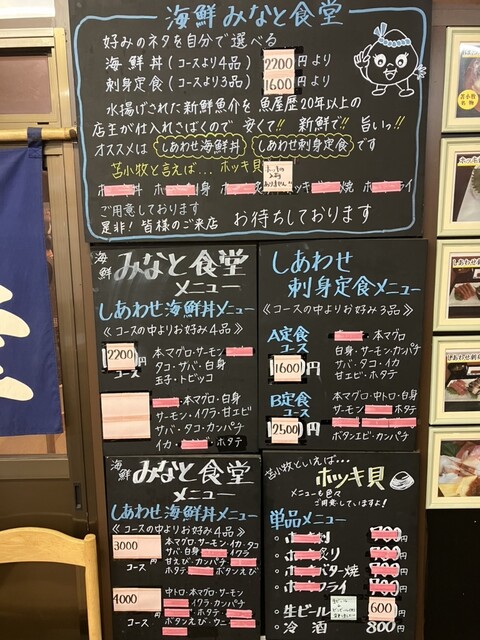 海鮮みなと食堂
好みのネタを自分で選べる
海鮮丼(コースより4品) 2200円より
刺身定食(コースより3品) 1600円より
水揚げされた新鮮魚介を魚屋歴20年以上の
店主が仕入れさばくので 安くて!! 新鮮で!! 旨いっ!!
オススメは しあわせ海鮮丼 しあわせ刺身定食 です
苫小牧と言えば… ホッキ貝
ホ 丼 ホ 刺身 ホ 炙 ホッキ 焼 ホ フライ
ご用意しております
是非!皆様のご来店 お待ちしております
海鮮 みなと食堂
メニュー
しあわせ海鮮丼メニュー
《コースの中よりお好み4品》
2200円
コース
本マグロ・サーモン
タコ・サバ・白身
玉子・トビッコ
本マグロ・白身
サーモン・イクラ・甘エビ
サバ・タコ・カンパチ
イカ ホタテ
しあわせ
刺身定食メニュー
《コースの中よりお好み3品》
A定食
コース
1600円
本マグロ
白身・サーモン・カンパチ
サバ・タコ・イカ
甘エビ・ホタテ
B定食
コース
2500円
本マグロ・中トロ・白身
サーモン ホタテ
ボタンエビ・カンパチ
海鮮 みなと食堂
メニュー
しあわせ海鮮丼メニュー
《コースの中よりお好み4品》
3000円
コース
本マグロ・サーモン・イカ・タコ
サバ・白身 イクラ
甘えび・カンパチ
ホタテ ボタンえび
4000円
コース
中トロ・本マグロ・サーモン
イクラ・カンパチ
ホタテ
ボタンえび・ウニ
苫小牧といえば…
ホッキ貝
メニューも色々
ご用意していますよ!
単品メニュー
ホ 刺 700円
ホ 炙り 円
ホ バター焼 700円
ホ フライ 円
生ビール 600円
冷酒 800円
苫小牧
名物